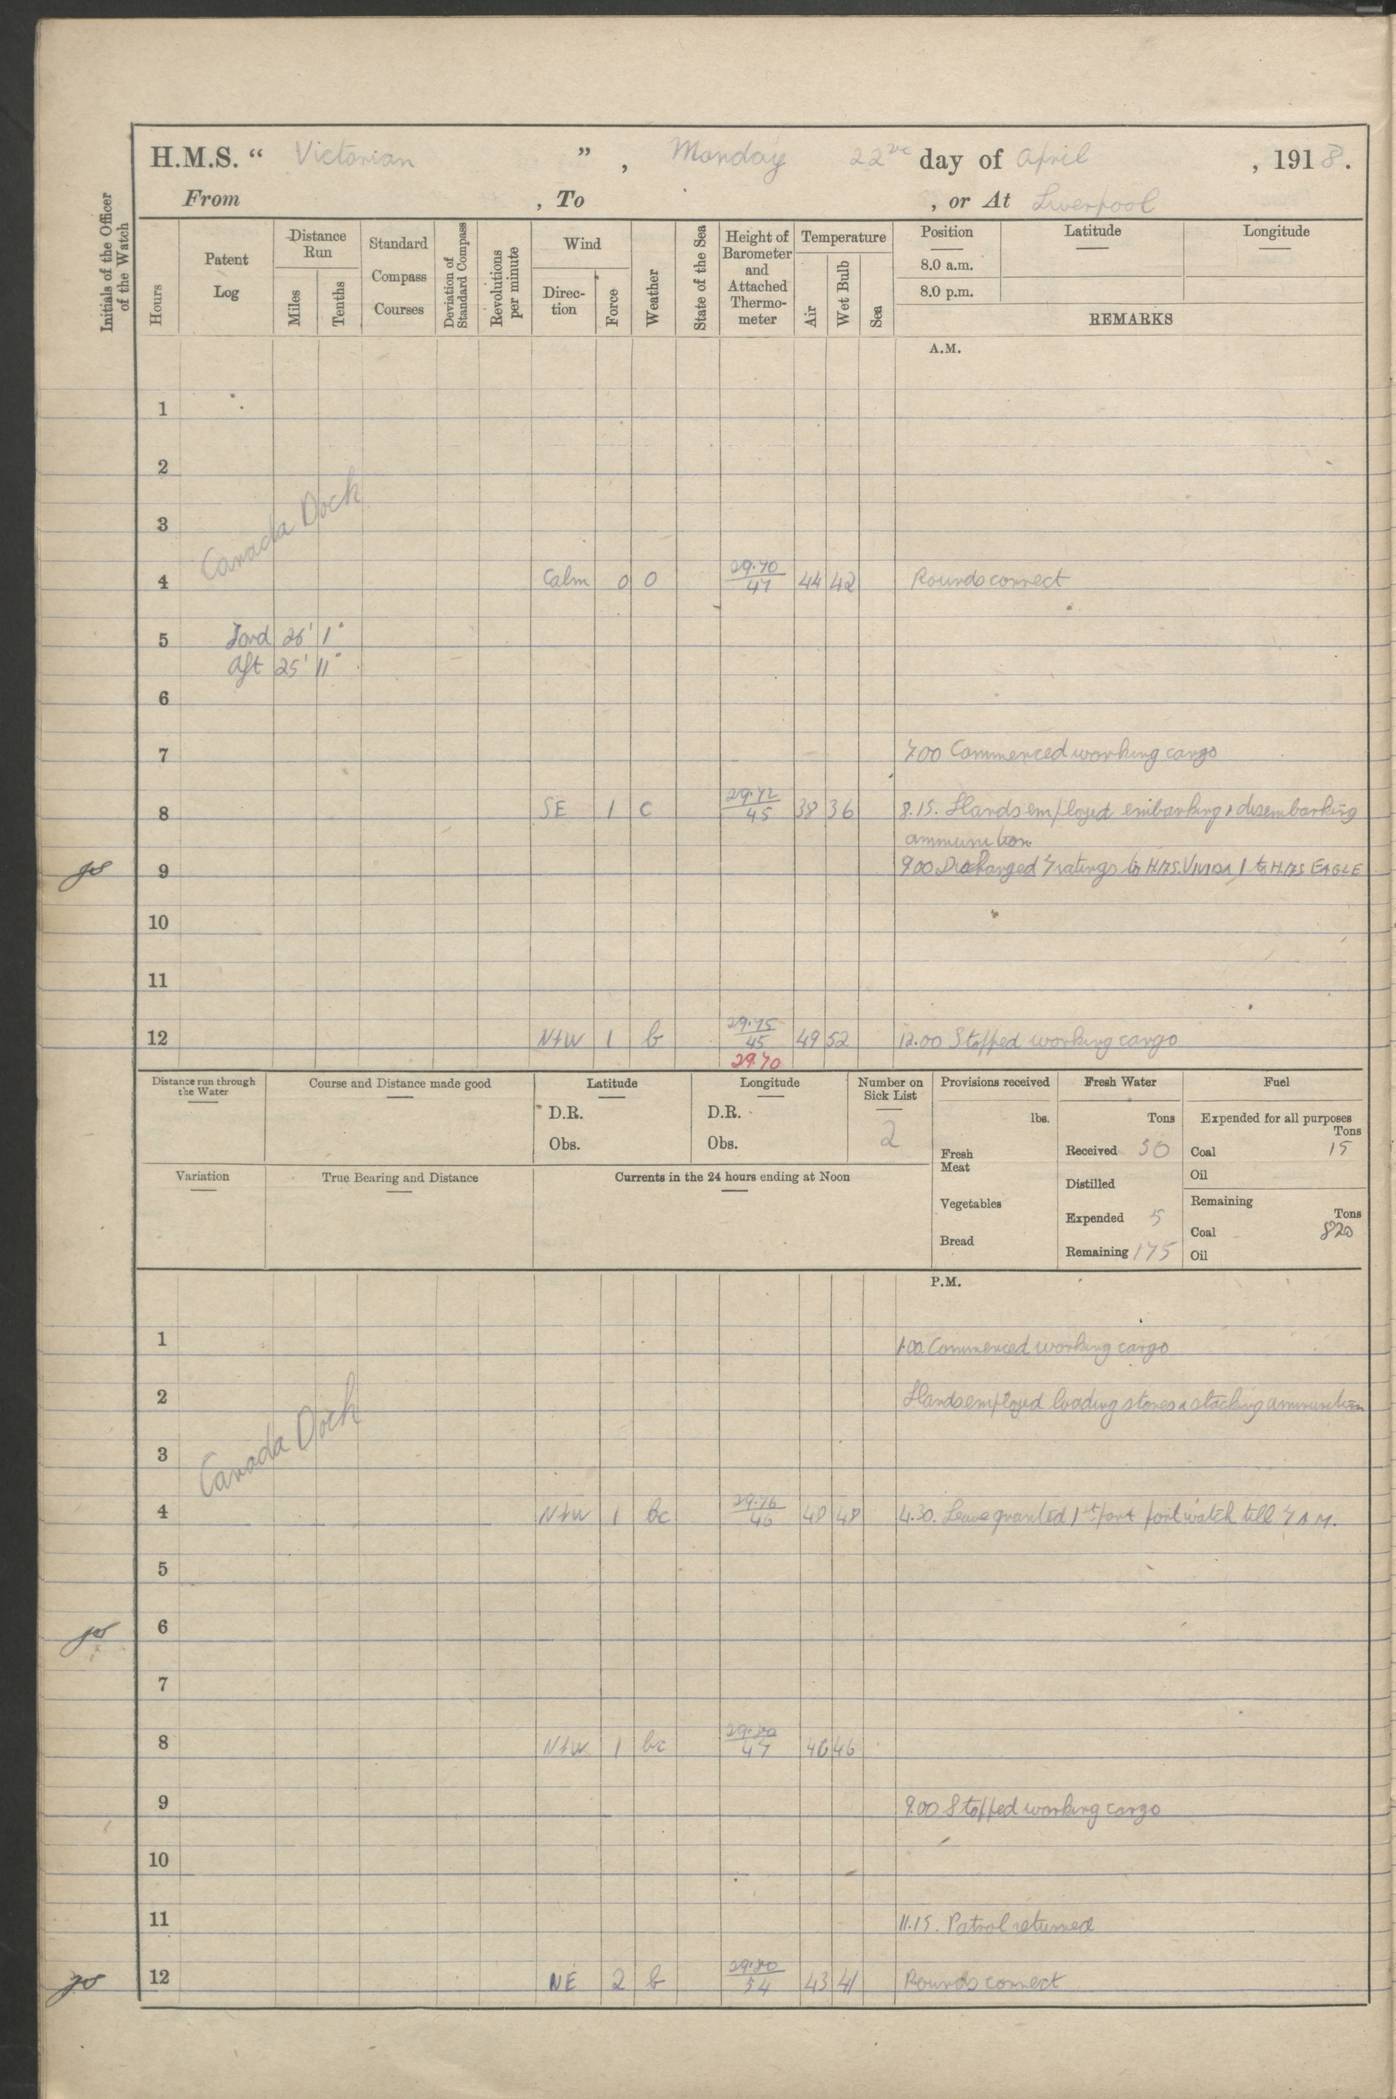 H.M.S. “ Victorian ”, Monday 22nd day of April, 1918.
From , To , or At Liverpool
Initials of the Officer of the Watch
Hours
Patent Log
Distance Run
Miles
Tenths
Standard Compass Courses
Deviation of Standard Compass
Revolutions per minute
Wind
Direction
Force
Weather
State of the Sea
Height of Barometer and Attached Thermometer
Temperature
Air
Wet Bulb
Sea
Position
8.0 a.m.
8.0 p.m.
Latitude
Longitude
REMARKS
A.M.
1
2
3
Canada Dock
4 Calm 0 0 29.70 47 44 42 Rounds correct
5 Ford 26' 1"
Aft 25' 11"
6
7 7.00 Commenced working cargo
8 SE 1 c 29.72 45 38 36 8.15. Hands employed embarking & disembarking
ammunition
9 9.00 Discharged 7 ratings to H.M.S. VIVID 1 to H.M.S EAGLE
10
11
12 N+W 1 b 29.75 45 49 52 12.00 Stopped working cargo
29.70
Distance run through the Water
Course and Distance made good
Latitude
D.R.
Obs.
Longitude
D.R.
Obs.
Number on Sick List
2
Provisions received
lbs.
Fresh Meat
Vegetables
Bread
Fresh Water
Tons
Received 50
Distilled
Expended 5
Remaining 175
Fuel
Expended for all purposes
Tons
Coal 15
Oil
Remaining
Tons
Coal 820
Oil
Variation
True Bearing and Distance
Currents in the 24 hours ending at Noon
P.M.
1 1.00 Commenced working cargo
2 Hands employed loading stores & stacking ammunition
3
Canada Dock
4 N+W 1 bc 29.76 46 48 48 4.30. Leave granted 1st part port watch till 7 A.M.
5
6
7
8 N+W 1 bc 29.80 47 46 46
9 9.00 Stopped working cargo
10
11 11.15. Patrol returned
12 NE 2 b 29.80 54 43 41 Rounds correct